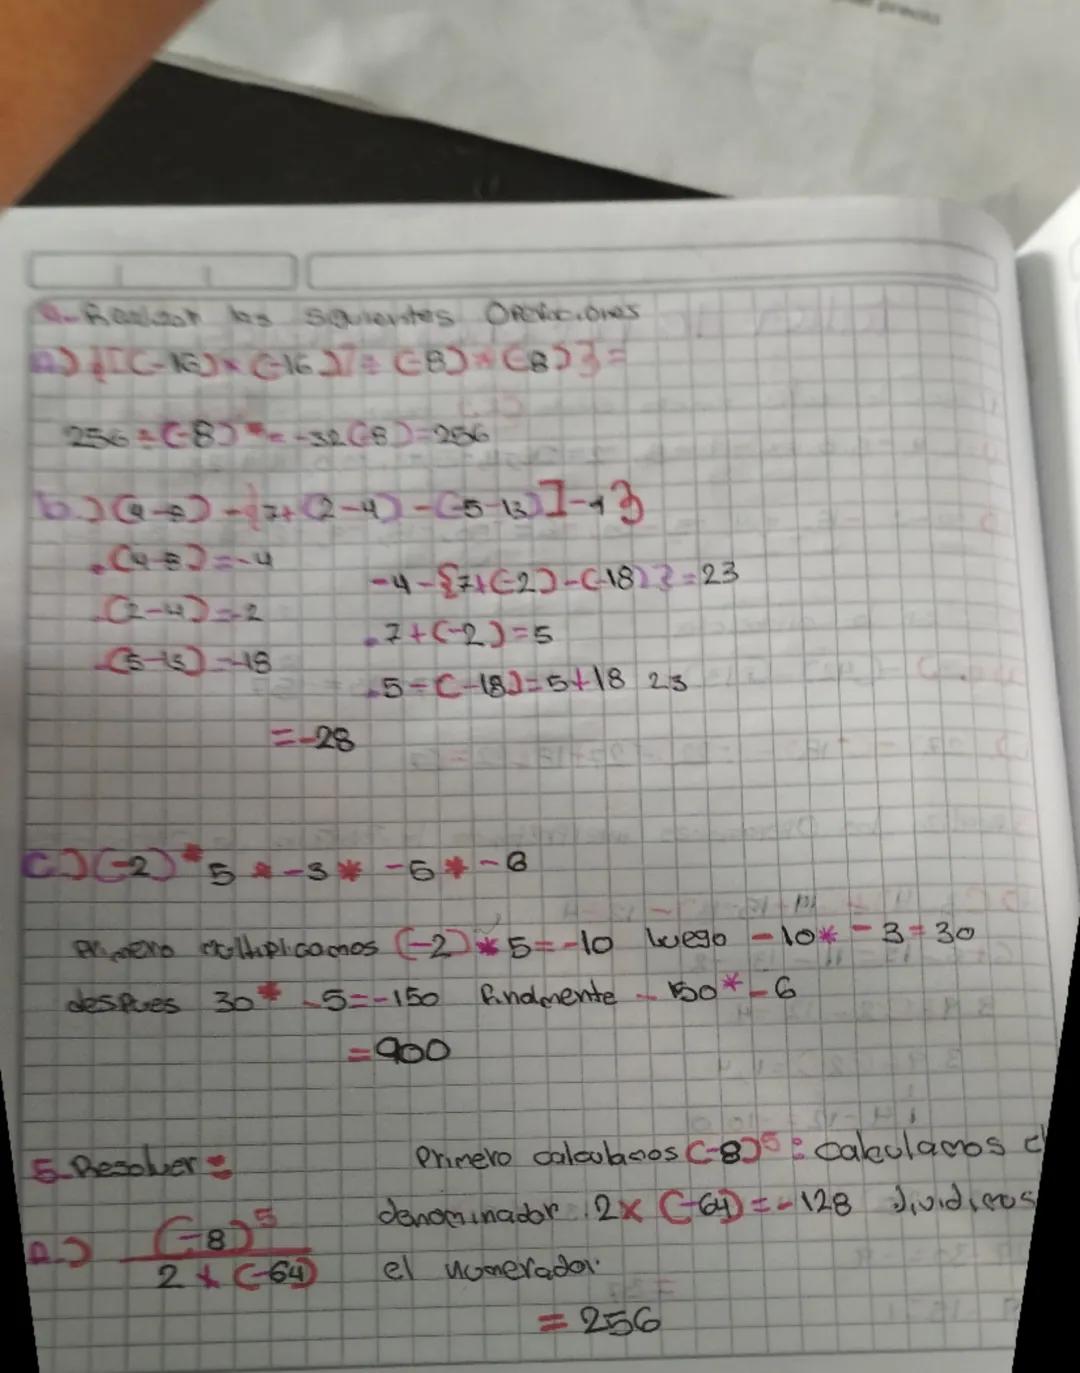 4.- Realizar las siguientes Operaciones
a.) {[(-16)×(-16)]÷(-8)*(-8)}=
256÷(-8)*=-32(-8)=256
b.) (4-8)-{7+(2-4)-(-5-13)]-1}
.(4-8)=-4
-4-{7+(-2)-(-18)}=23
.(2-4)=-2
.7+(-2)=5
-(5-13)=-18
.5-(-18)=5+18 23
=-28
c.) (-2)*5*-3*-5*-6
Primero multiplicamos (-2)*5=-10 luego -10*-3=30
despues 30*-5=-150 finalmente -150*-6
=900
5. Resolver=
Primero calculamos (-8)⁵: calculamos el
denominador. 2×(-64)=-128 dividimos
a.) (-8)⁵
2×(-64)
el numerador.
=256